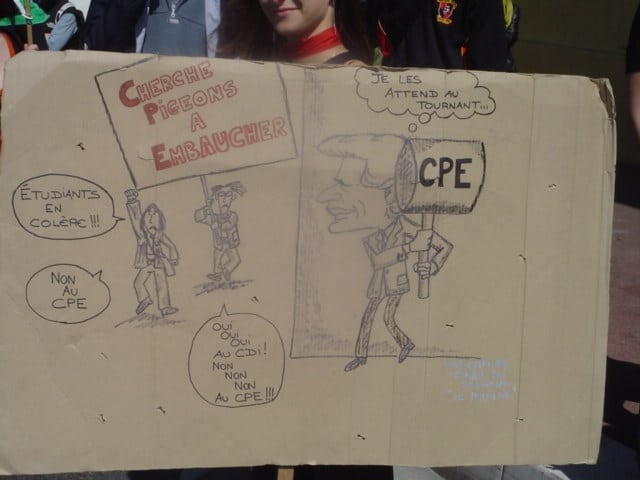 CHERCHE
PIGEONS
A
EMBAUCHER
JE LES
ATTEND AU
TOURNANT...
CPE
ÉTUDIANTS
EN
COLÈRE!!!
NON
AU
CPE
OUI
OUI
OUI
AU CDI!
NON
NON
NON
AU CPE!!!